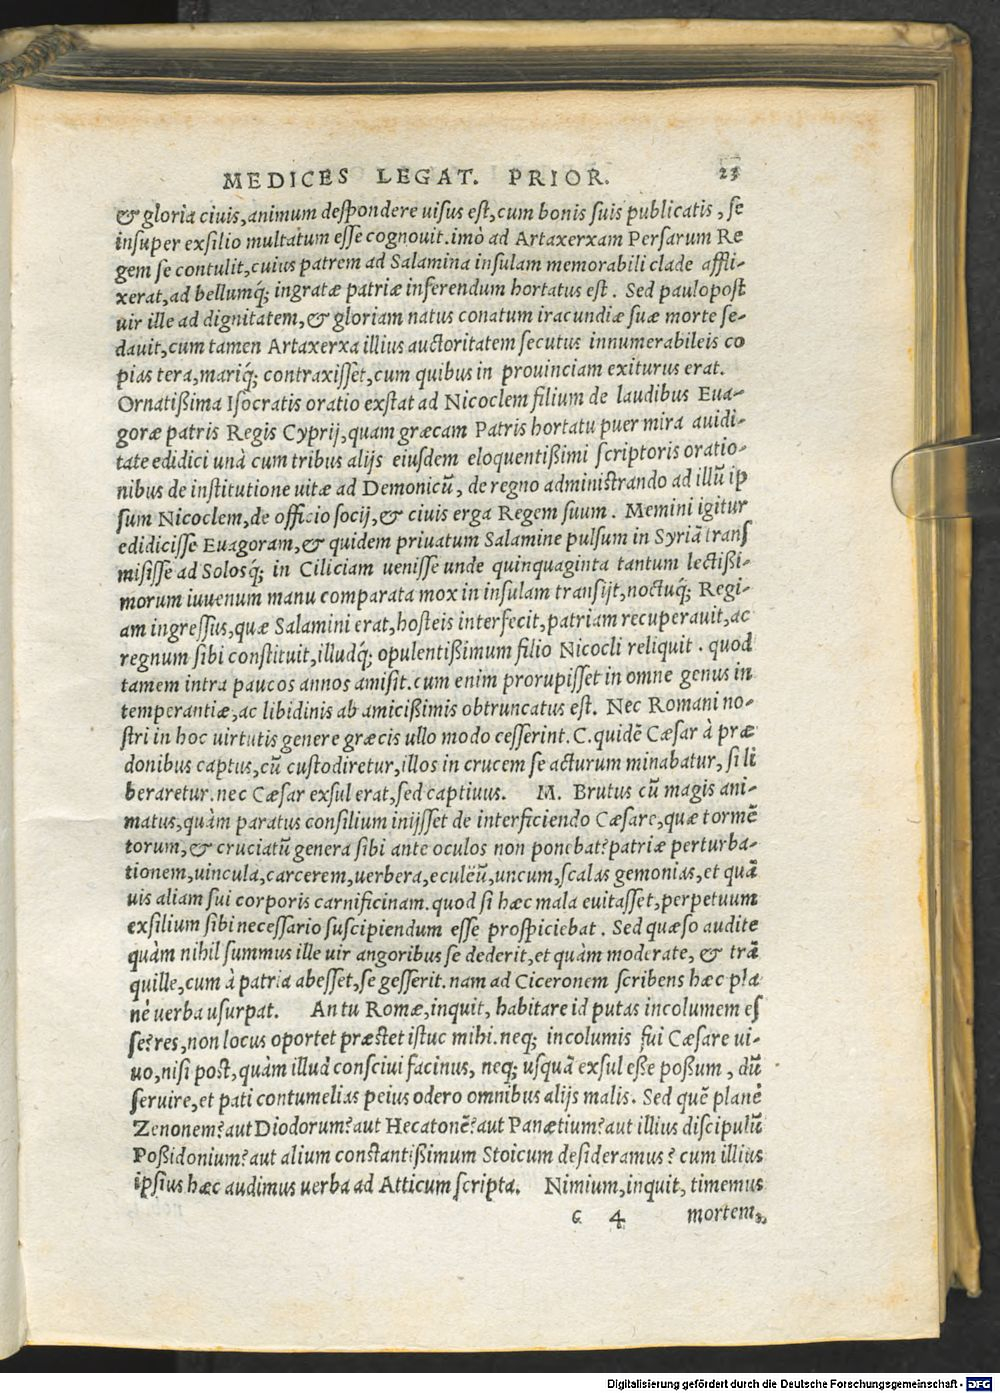 MEDICES LEGAT. PRIOR. 23
& gloria ciuis, animum despondere uisus est, cum bonis suis publicatis, se
insuper exsilio multatum esse cognouit. imò ad Artaxerxam Persarum Re
gem se contulit, cuius patrem ad Salamina insulam memorabili clade affli-
xerat, ad bellumq́; ingratæ patriæ inferendum hortatus est. Sed paulopost
uir ille ad dignitatem, & gloriam natus conatum iracundiæ suæ morte se-
dauit, cum tamen Artaxerxa illius auctoritatem secutus innumerabileis co
pias tera, mariq́; contraxisset, cum quibus in prouinciam exiturus erat.
Ornatißima Isocratis oratio exstat ad Nicoclem filium de laudibus Eua-
goræ patris Regis Cyprij, quam græcam Patris hortatu puer mira auidi-
tate edidici unà cum tribus alijs eiusdem eloquentißimi scriptoris oratio-
nibus de institutione uitæ ad Demonicũ, de regno administrando ad illũ ip
sum Nicoclem, de officio socij, & ciuis erga Regem suum. Memini igitur
edidicisse Euagoram, & quidem priuatum Salamine pulsum in Syriã trans
misisse ad Solosq́; in Ciliciam uenisse unde quinquaginta tantum lectißi-
morum iuuenum manu comparata mox in insulam transijt, noctuq́; Regi-
am ingressus, quæ Salamini erat, hosteis interfecit, patriam recuperauit, ac
regnum sibi constituit, illudq́; opulentißimum filio Nicocli reliquit. quod
tamem intra paucos annos amisit. cum enim prorupisset in omne genus in
temperantiæ, ac libidinis ab amicißimis obtruncatus est. Nec Romani no-
stri in hoc uirtutis genere græcis ullo modo cesserint. C. quidẽ Cæsar à præ
donibus captus, cũ custodiretur, illos in crucem se acturum minabatur, si li
beraretur. nec Cæsar exsul erat, sed captiuus. M. Brutus cũ magis ani-
matus, quàm paratus consilium inijsset de interficiendo Cæsare, quæ tormẽ
torum, & cruciatũ genera sibi ante oculos non ponebat? patriæ perturba-
tionem, uincula, carcerem, uerbera, eculëũ, uncum, scalas gemonias, et quã
uis aliam sui corporis carnificinam. quod si hæc mala euitasset, perpetuum
exsilium sibi necessario suscipiendum esse prospiciebat. Sed quæso audite
quàm nihil summus ille uir angoribus se dederit, et quàm moderate, & trã
quille, cum à patria abesset, se gesserit. nam ad Ciceronem scribens hæc pla
nè uerba usurpat. An tu Romæ, inquit, habitare id putas incolumem es
se? res, non locus oportet præstet istuc mihi. neq; incolumis fui Cæsare ui-
uo, nisi post, quàm illud consciui facinus, neq; usquã exsul eße poßum, dũ
seruire, et pati contumelias peius odero omnibus alijs malis. Sed quẽ planè
Zenonem? aut Diodorum? aut Hecatonẽ? aut Panætium? aut illius discipulũ
Poßidonium? aut alium constantißimum Stoicum desideramus? cum illius
ipsius hæc audimus uerba ad Atticum scripta. Nimium, inquit, timemus
G 4 mortem,
Digitalisierung gefördert durch die Deutsche Forschungsgemeinschaft - DFG